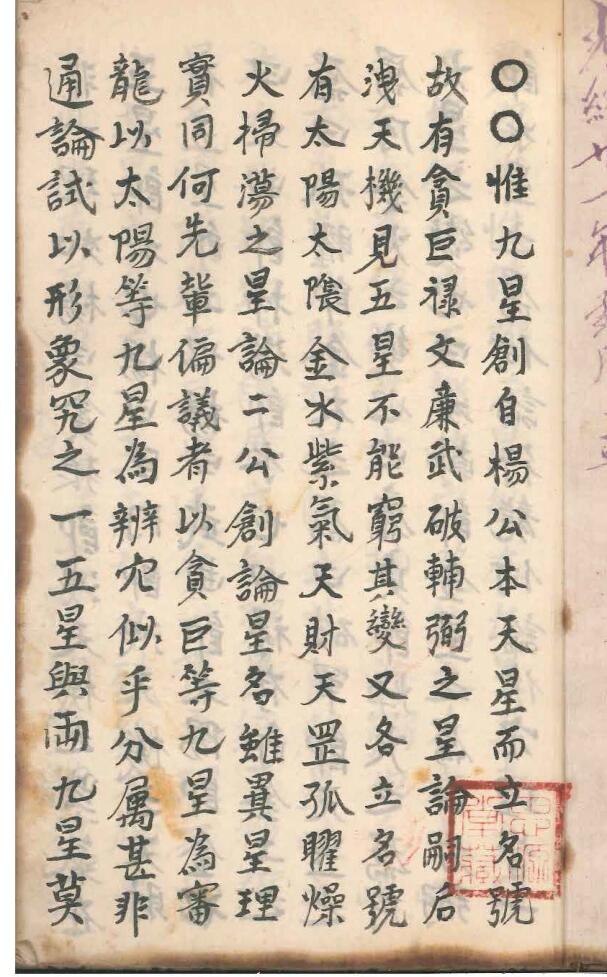 〇〇惟九星創自楊公本天星而立名號
故有貪巨祿文廉武破輔弼之星論嗣后
洩天機見五星不能窮其變又各立名號
有太陽太陰金水紫氣天財天罡孤曜燥
火掃蕩之星論二公創論星名雖異星理
實同何先輩偏議者以貪巨等九星為審
龍以太陽等九星為辨穴似乎分属甚非
通論試以形象究之一五星與両九星莫